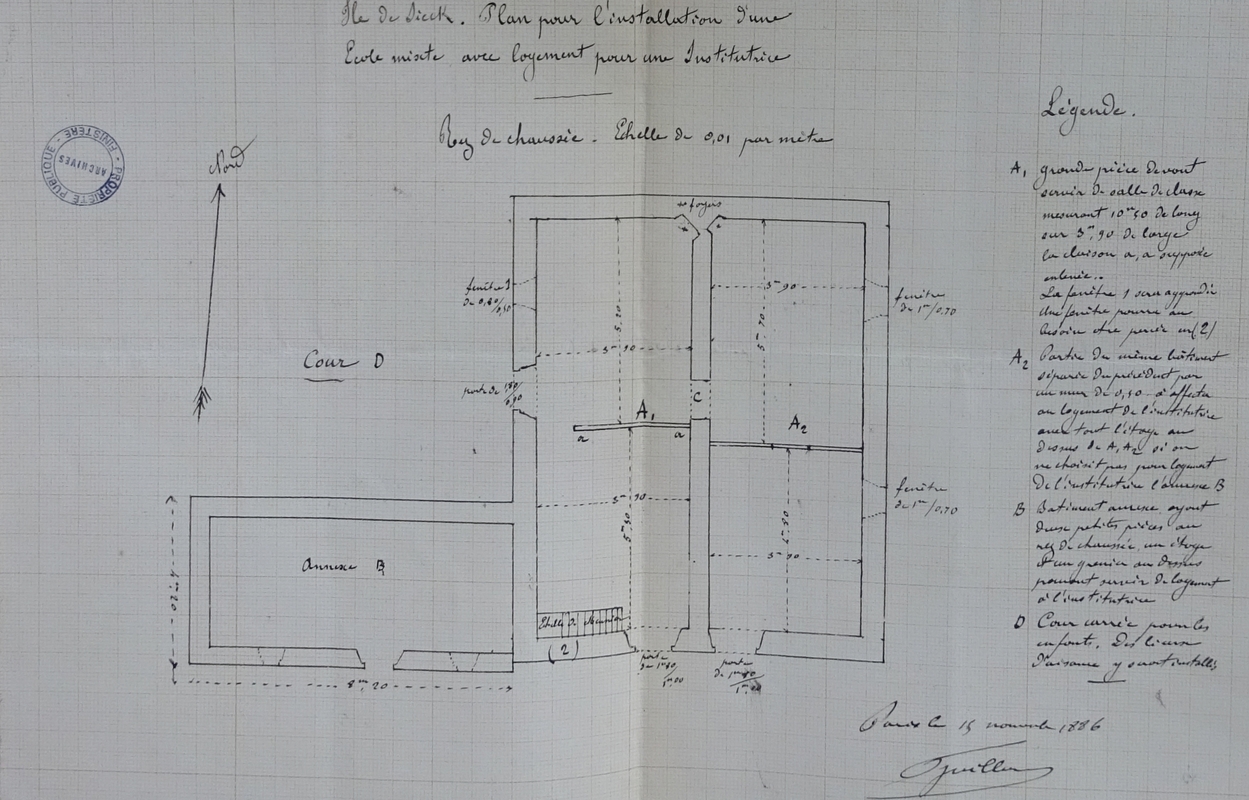 Ile de Sieck. Plan pour l'installation d'une
Ecole mixte avec logement pour une Institutrice
Rez de chaussée. Echelle de 0,01 par mètre
PROPRIÉTÉ PUBLIQUE - FINISTÈRE -
ARCHIVES
Nord
foyers
fenêtre 1
de 0,80/0,50
5,20
3m 90
3m 90
5m 70
fenêtre
de 1m/0,70
Cour D
porte de 1,80/0,90
C
A1
a
a
A2
3m 90
5m 30
fenêtre
de 1m/0,70
3m 90
Annexe B
Echelle de Meunier
(2)
porte
de 1m80/1m00
porte
de 1m80/1m00
8m,20
Légende.
A1 grande pièce devant
servir de salle de classe
mesurant 10m50 de long
sur 3m,90 de large
la cloison a, a supposée
enlevée..
La fenêtre 1 sera agrandie
Une fenêtre pourra au
besoin être percée en (2)
A2 Partie du même bâtiment
séparée du précédent par
un mur de 0,50 à affecter
au logement de l'institutrice
avec tout l'étage au
dessus de A1 A2 si on
ne choisit pas pour logement
de l'institutrice l'annexe B
B Batiment annexe ayant
deux petites pièces au
rez de chaussée, un étage
et un grenier au dessus
pouvant servir de logement
à l'institutrice
D Cour carrée pour les
enfants. Des lieux
d'aisance y seront installés
le 15 novembre 1886